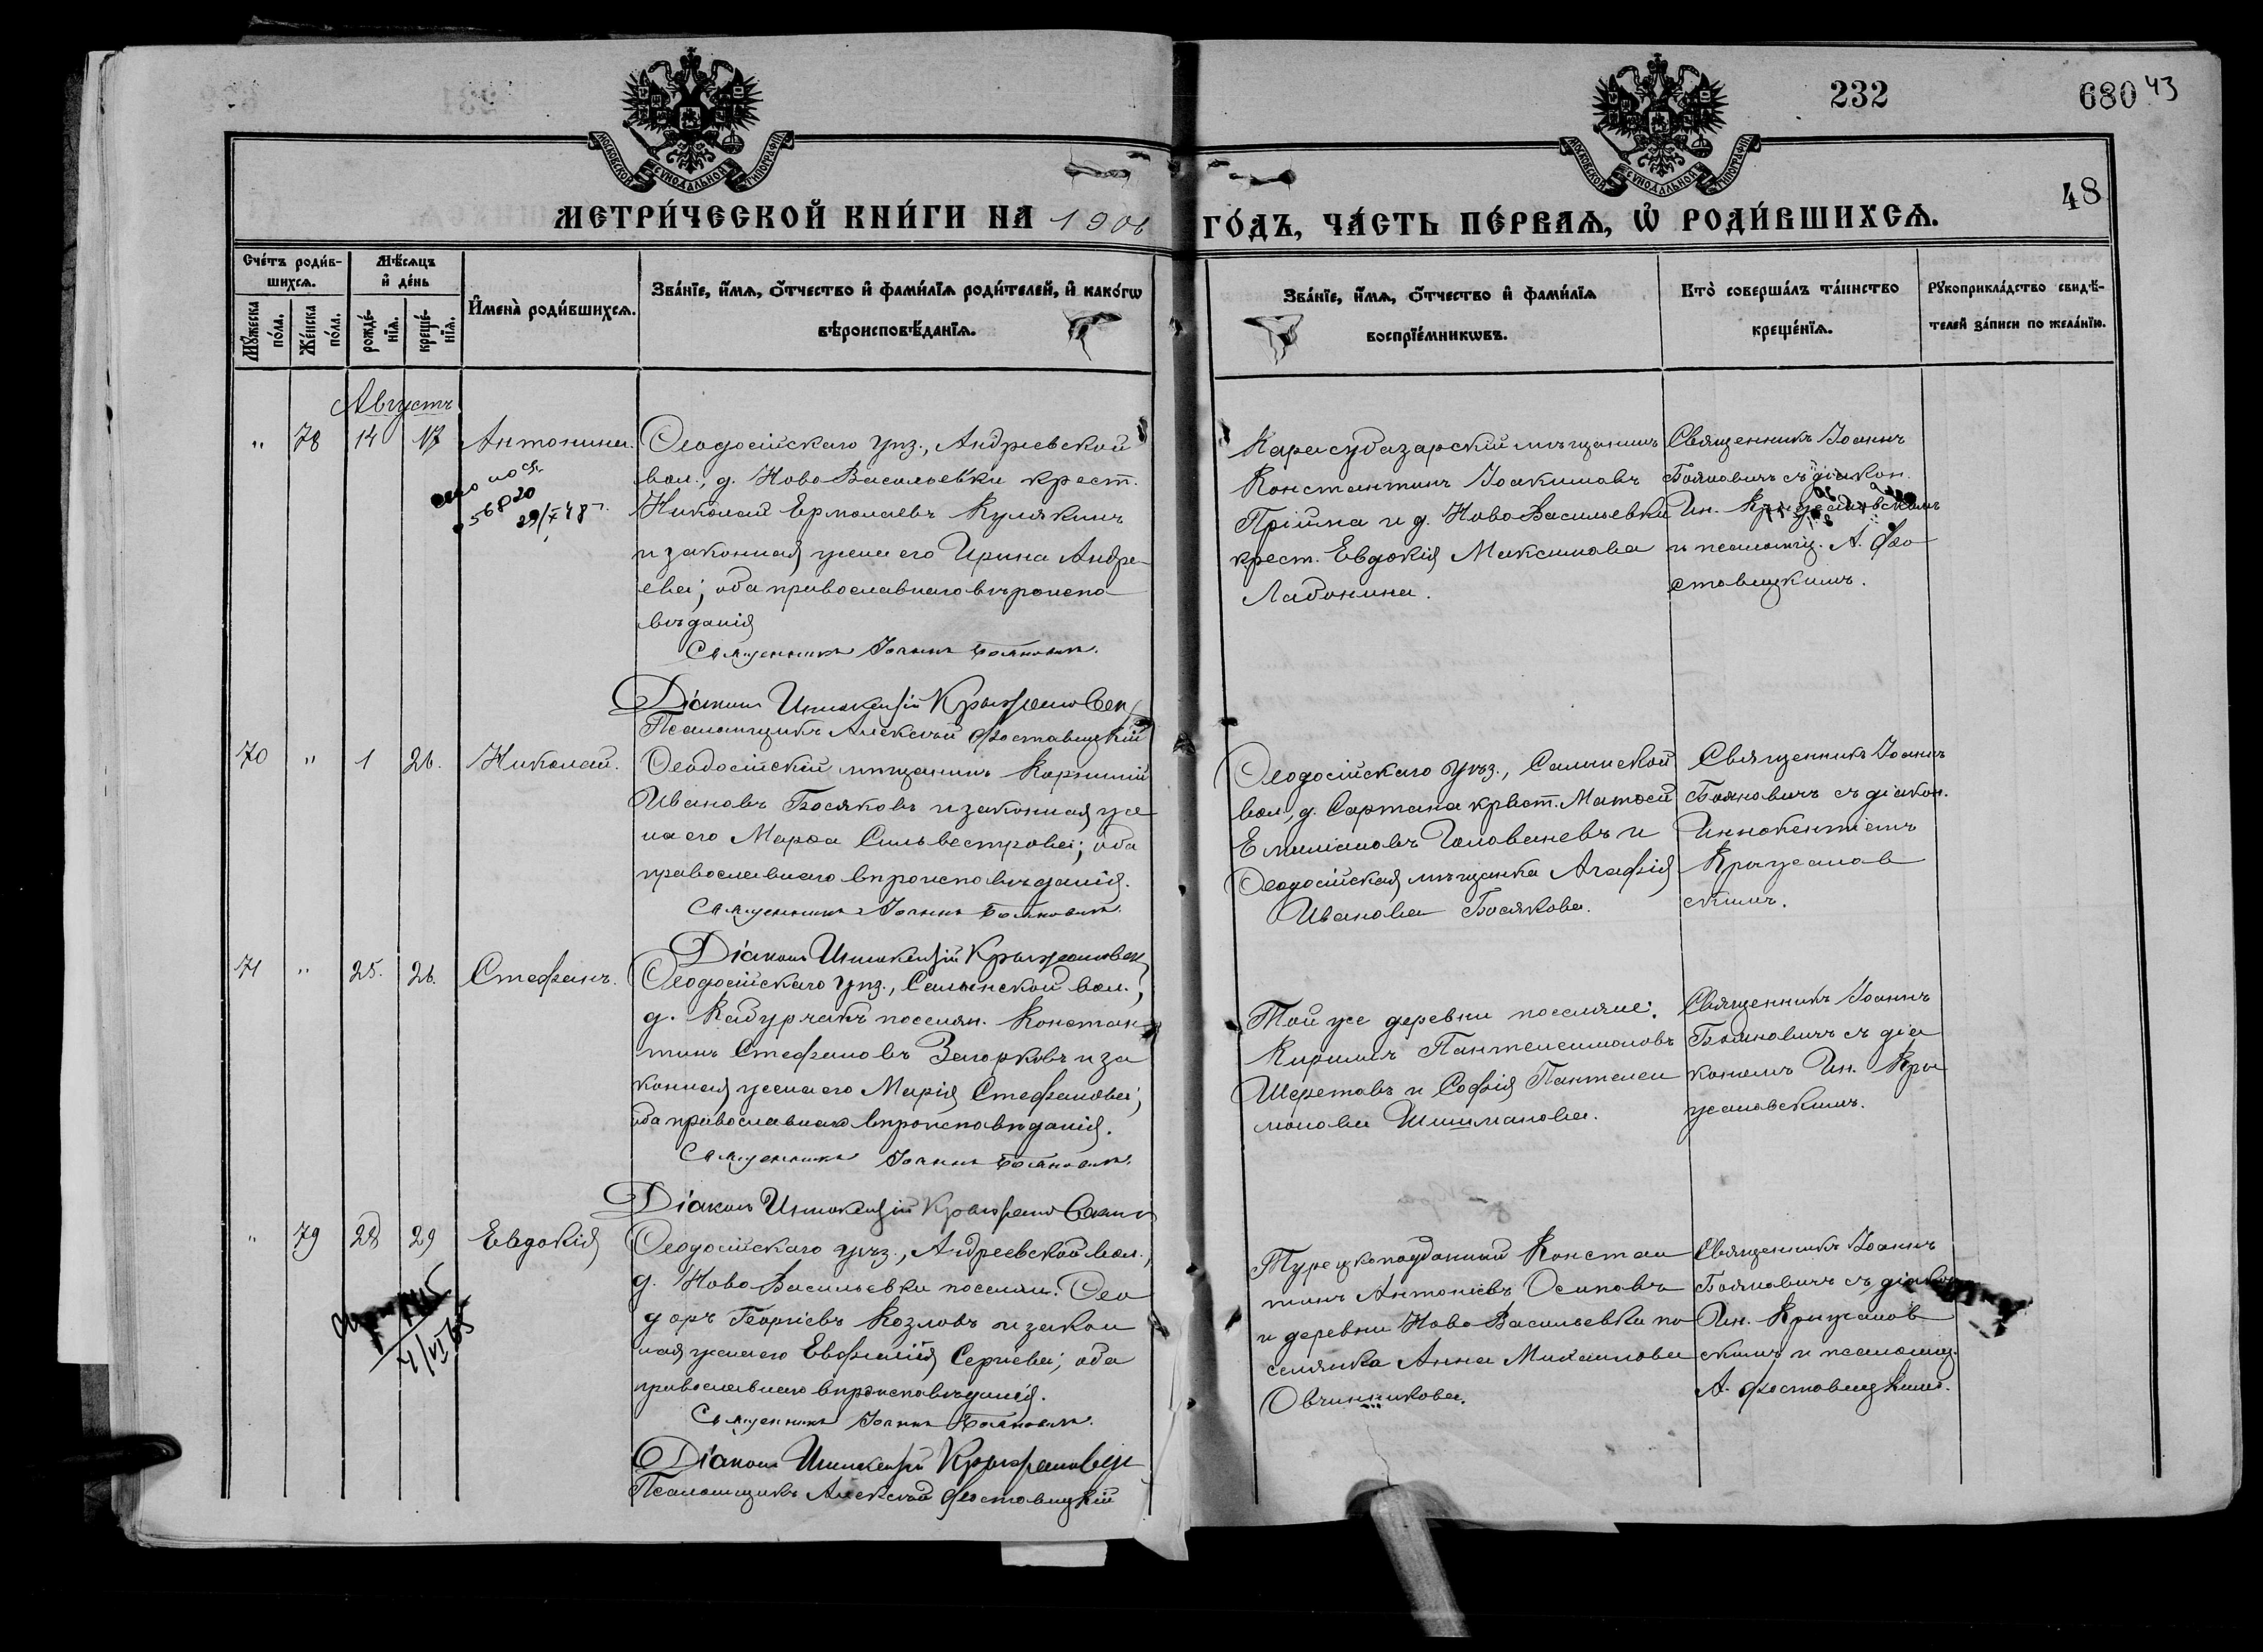 232
680 43
48
МОСКОВСКОЙ СУНОДАЛЬНОЙ ТИПОГРАФІИ
МОСКОВСКОЙ СУНОДАЛЬНОЙ ТИПОГРАФІИ
МЕТРИ́ЧЕСКОЙ КНИ́ГИ НА 1906
ГО́ДЪ, ЧА́СТЬ ПЕ́РВАЯ, Ѡ РОДИ́ВШИХСЯ.
Сче́тъ роди́в-
шихся.
Мѣ́сяцъ
и де́нь
Мꙋ́жеска
по́ла.
Же́нска
по́ла.
рожде́-
нїя.
креще́-
нїя.
И҆мена̀ роди́вшихся.
Зва́нїе, и҆́мя, о҆́тчество и҆ фами́лїя роди́телей, и҆ како́гѡ
вѣроисповѣ́данїя.
Зва́нїе, и҆́мя, о҆́тчество и҆ фами́лїя
воспрїе́мникѡвъ.
Кто̀ соверша́лъ та́инство
креще́нїя.
Рꙋкоприкла́дство свидѣ́-
телей за́писи по жела́нїю.
Августъ
" 78 14 17 Антонина.
Ѳеодосійскаго уѣз., Андреевской
вол., д. Ново Васильевки крест.
Николай Ермолаевъ Кулякинъ
и законная жена его Ирина Андре-
ева; оба православнаго вѣроиспо
вѣданія
Священникъ Іоаннъ Бояновичъ.
Діаконъ Иннокентій Крыжановск
Псаломщикъ Алексѣй Фоставицкій
56820
29/X 48 г.
Карасубазарскій мѣщанинъ
Константинъ Іоакимовъ
Прійма и д. Ново Васильевки
крест. Евдокія Максимова
Ладонина.
Священникъ Іоаннъ
Бояновичъ съ діакон.
Ин. Крыжановскимъ
и псаломщ. А. Фо
ставицкимъ.
70 " 1 26. Николай.
Ѳеодосійскій мѣщанинъ Корнилій
Ивановъ Босяковъ и законная же
на его Марѳа Сильвестрова; оба
православнаго вѣроисповѣданія.
Священникъ Іоаннъ Бояновичъ.
Діаконъ Иннокентій Крыжановск
Ѳеодосійскаго уѣз., Салынской
вол., д. Сартана крест. Матѳей
Емиліановъ Голованевъ и
Ѳеодосійская мѣщанка Агафія
Иванова Босякова.
Священникъ Іоаннъ
Бояновичъ съ діакон.
Иннокентіемъ
Крыжанов
скимъ.
71 " 25. 26. Стефанъ.
Ѳеодосійскаго уѣз., Салынской вол.,
д. Кабурчакъ поселян. Констан
тинъ Стефановъ Загорковъ и за
конная жена его Марія Стефанова;
оба православнаго вѣроисповѣданія.
Священникъ Іоаннъ Бояновичъ.
Діаконъ Иннокентій Крыжановски
Той же деревни поселяне:
Кириллъ Пантелеимоновъ
Шеретовъ и Софія Пантелеи
монова Шишманова.
Священникъ Іоаннъ
Бояновичъ съ діа
кономъ Ин. Кры
жановскимъ.
" 79 28 29 Евдокія
Ѳеодосійскаго уѣз., Андреевской вол.,
д. Ново Васильевки поселян. Ѳео
доръ Георгіевъ Козловъ и закон
ная жена его Евфимія Сергіева; оба
православнаго вѣроисповѣданія.
Священникъ Іоаннъ Бояновичъ.
Діаконъ Иннокентій Крыжановск
Псаломщикъ Алексѣй Фоставицкій
4/VI 65
Турецкоподданный Констан
тинъ Антоніевъ Осиповъ
и деревни Ново Васильевки по
селянка Анна Михаилова
Овчинникова.
Священникъ Іоаннъ
Бояновичъ съ діакон
Ин. Крыжанов
скимъ и псаломщ.
А. Фоставицкимъ.